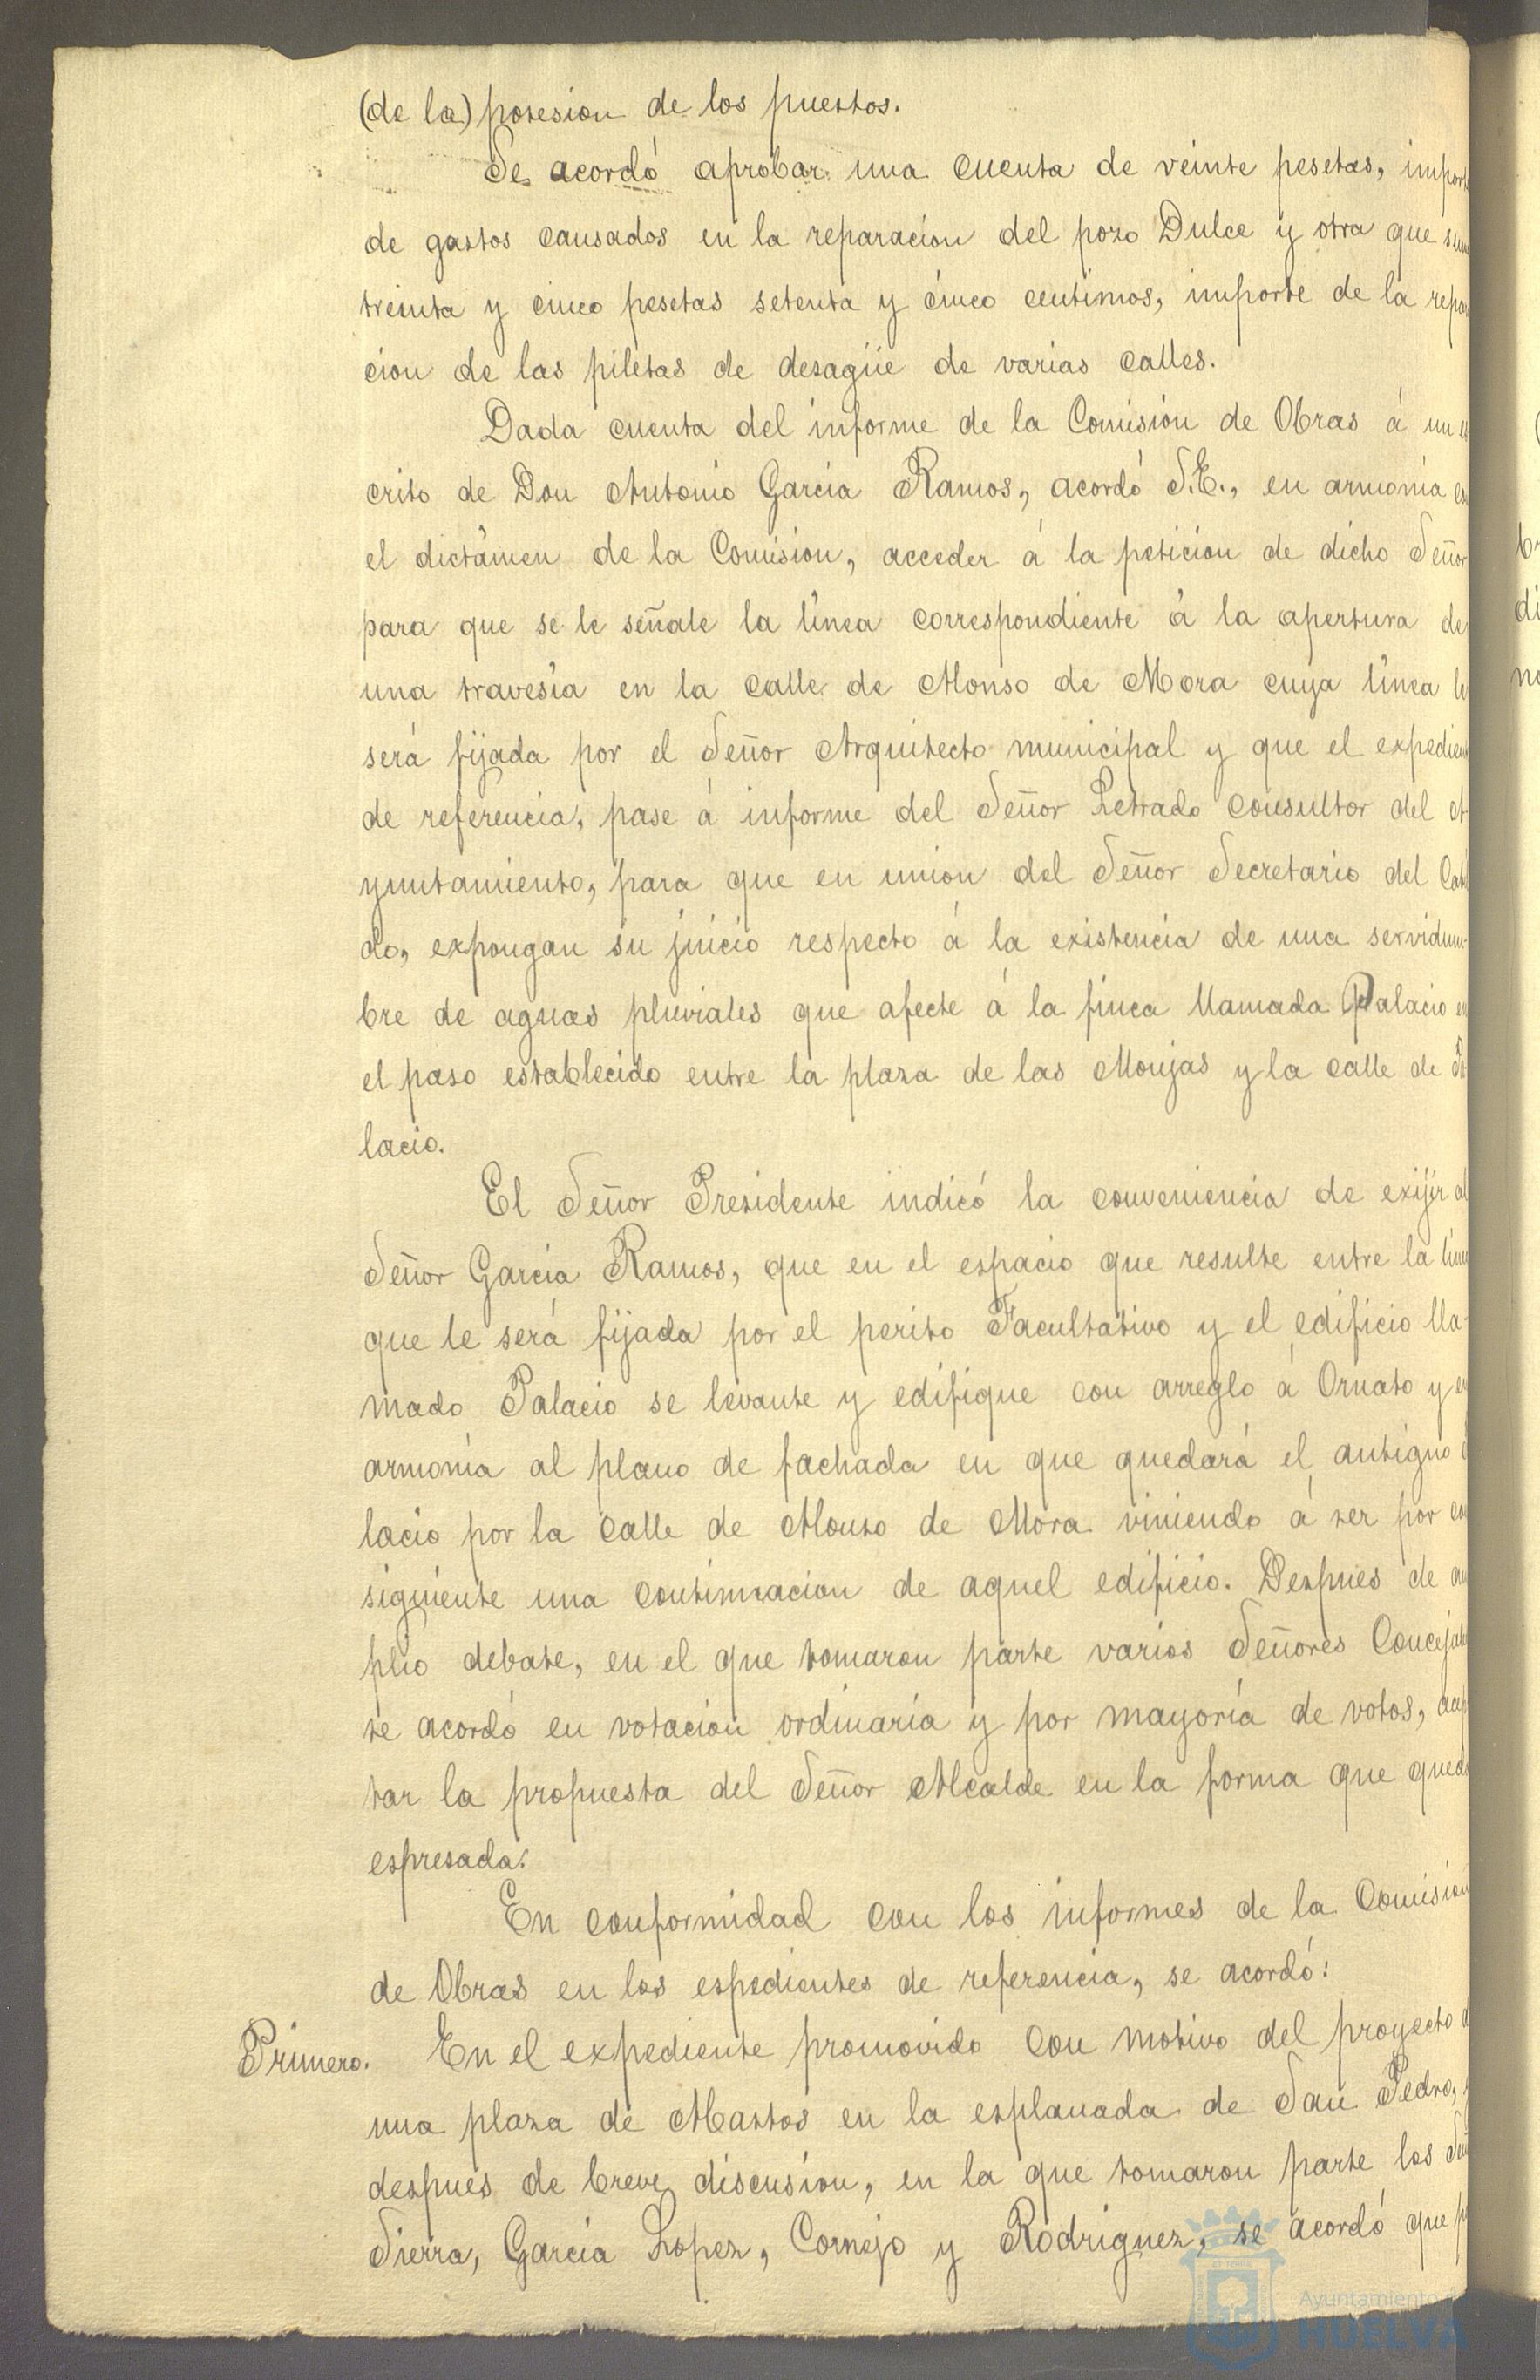 (de la) posesion de los puestos.
Se acordó aprobar una cuenta de veinte pesetas, import
de gastos causados en la reparacion del pozo Dulce y otra que sum
treinta y cinco pesetas setenta y cinco centimos, importe de la repa
cion de las piletas de desagüe de varias calles.
Dada cuenta del informe de la Comision de Obras á un
crito de Don Antonio García Ramos, acordó S.E., en armonía co
el dictámen de la Comision, acceder á la peticion de dicho Señor
para que se le señale la línea correspondiente á la apertura de
una travesía en la calle de Alonso de Mora cuya línea le
será fijada por el Señor Arquitecto municipal y que el expedien
de referencia, pase á informe del Señor Letrado Consultor del A
yuntamiento, para que en union del Señor Secretario del Cabi
do, expongan su juicio respecto á la existencia de una servidum-
bre de aguas pluviales que afecte á la finca llamada Palacio en
el paso establecido entre la plaza de las Monjas y la calle de Pa
lacio.
El Señor Presidente indicó la conveniencia de exijir al
Señor García Ramos, que en el espacio que resulte entre la líne
que le será fijada por el perito Facultativo y el edificio lla-
mado Palacio se levante y edifique con arreglo á Ornato y en
armonía al plano de fachada en que quedará el antiguo
lacio por la calle de Alonso de Mora viniendo á ser por con
siguiente una continuacion de aquel edificio. Despues de am
plio debate, en el que tomaron parte varios Señores Concejale
se acordó en votacion ordinaria y por mayoría de votos, acep
tar la propuesta del Señor Alcalde en la forma que queda
espresada.
En conformidad con los informes de la Comision
de Obras en los espedientes de referencia, se acordó:
Primero. En el expediente promovido con motivo del proyecto d
una plaza de Abastos en la esplanada de San Pedro,
despues de breve discusion, en la que tomaron parte los Señ
Sierra, García Lopez, Cornejo y Rodriguez, se acordó que p
Ayuntamiento
HUELVA